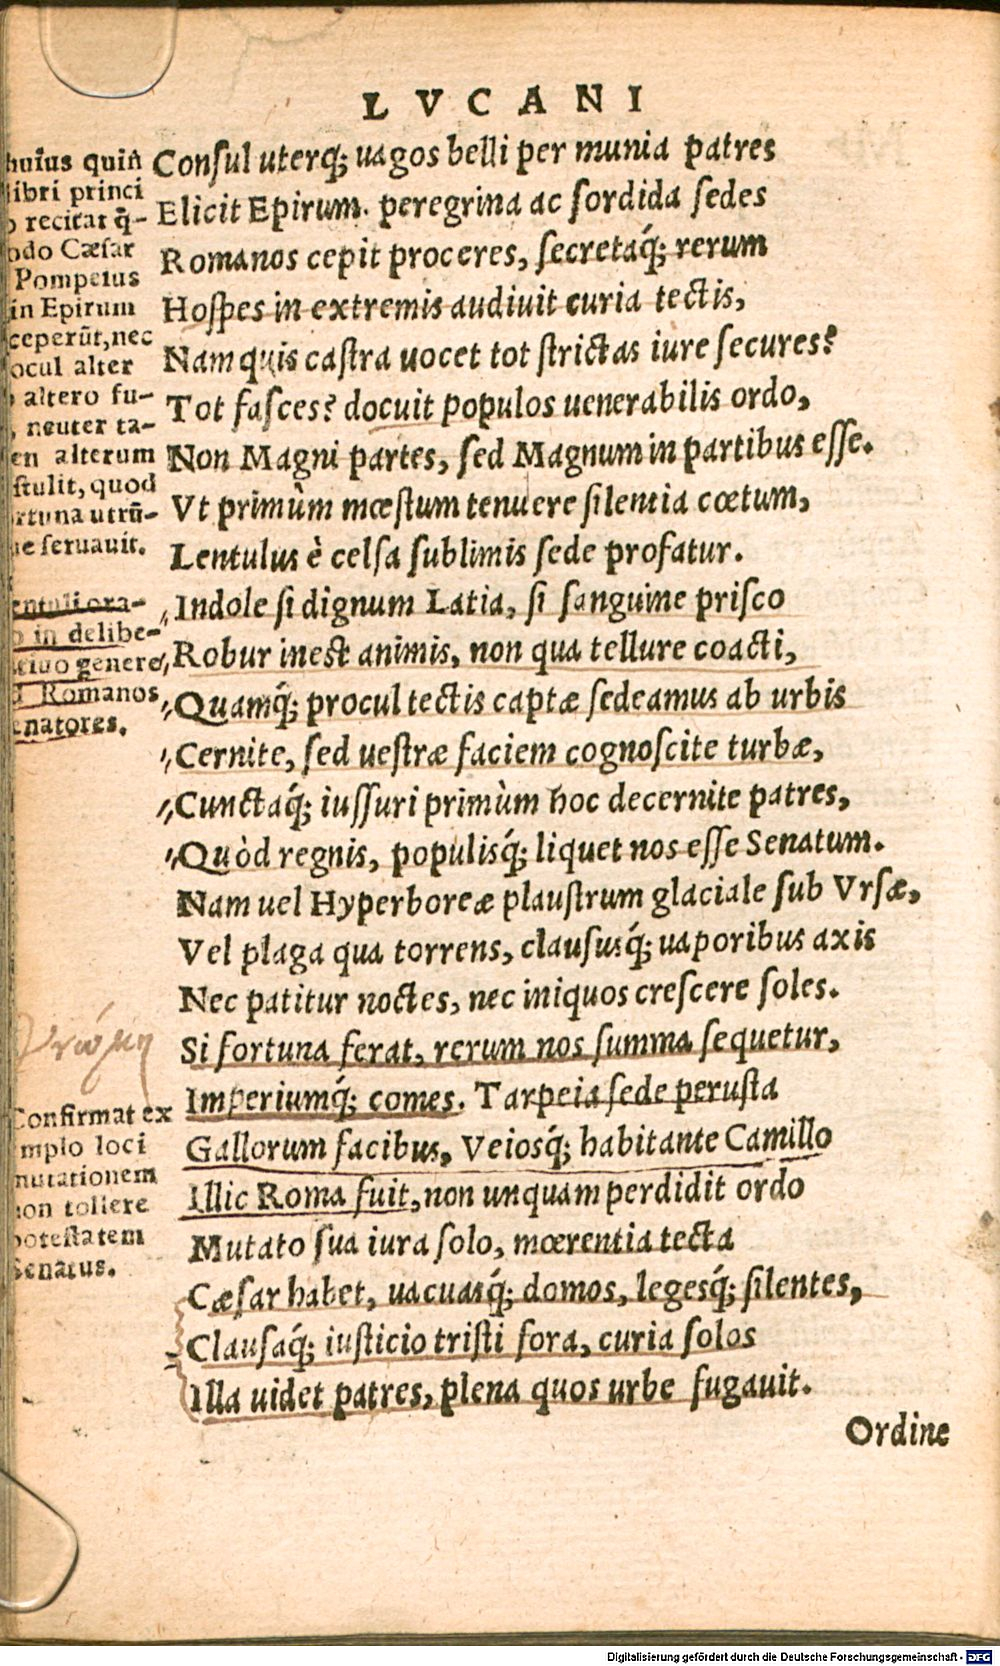 LVCANI
huius quin
libri princi
recitat q̃-
odo Cæsar
Pompeius
in Epirum
ceperũt, nec
ocul alter
altero fu-
neuter ta-
en alterum
stulit, quod
rtuna utrũ-
ue seruauit.
entuli ora-
in delibe-
tiuo genere
Romanos
enatores.
γνώμη
Confirmat ex
mplo loci
mutationem
non tollere
potestatem
Senatus.
Consul uterq́; uagos belli per munia patres
Elicit Epirum. peregrina ac sordida sedes
Romanos cepit proceres, secretaq́; rerum
Hospes in extremis audiuit curia tectis,
Nam quis castra uocet tot strictas iure secures?
Tot fasces? docuit populos uenerabilis ordo,
Non Magni partes, sed Magnum in partibus esse.
Vt primùm mœstum tenuere silentia cœtum,
Lentulus è celsa sublimis sede profatur.
„Indole si dignum Latia, si sanguine prisco
„Robur inest animis, non qua tellure coacti,
„Quamq́; procul tectis captæ sedeamus ab urbis
„Cernite, sed uestræ faciem cognoscite turbæ,
„Cunctaq́; iussuri primùm hoc decernite patres,
„Quòd regnis, populisq́; liquet nos esse Senatum.
Nam uel Hyperboreæ plaustrum glaciale sub Vrsæ,
Vel plaga qua torrens, claususq́; uaporibus axis
Nec patitur noctes, nec iniquos crescere soles.
Si fortuna ferat, rerum nos summa sequetur,
Imperiumq́; comes. Tarpeia sede perusta
Gallorum facibus, Veiosq́; habitante Camillo
Illic Roma fuit, non unquam perdidit ordo
Mutato sua iura solo, mœrentia tecta
Cæsar habet, uacuasq́; domos, legesq́; silentes,
Clausaq́; iusticio tristi fora, curia solos
Illa uidet patres, plena quos urbe fugauit.
Ordine
Digitalisierung gefördert durch die Deutsche Forschungsgemeinschaft - DFG